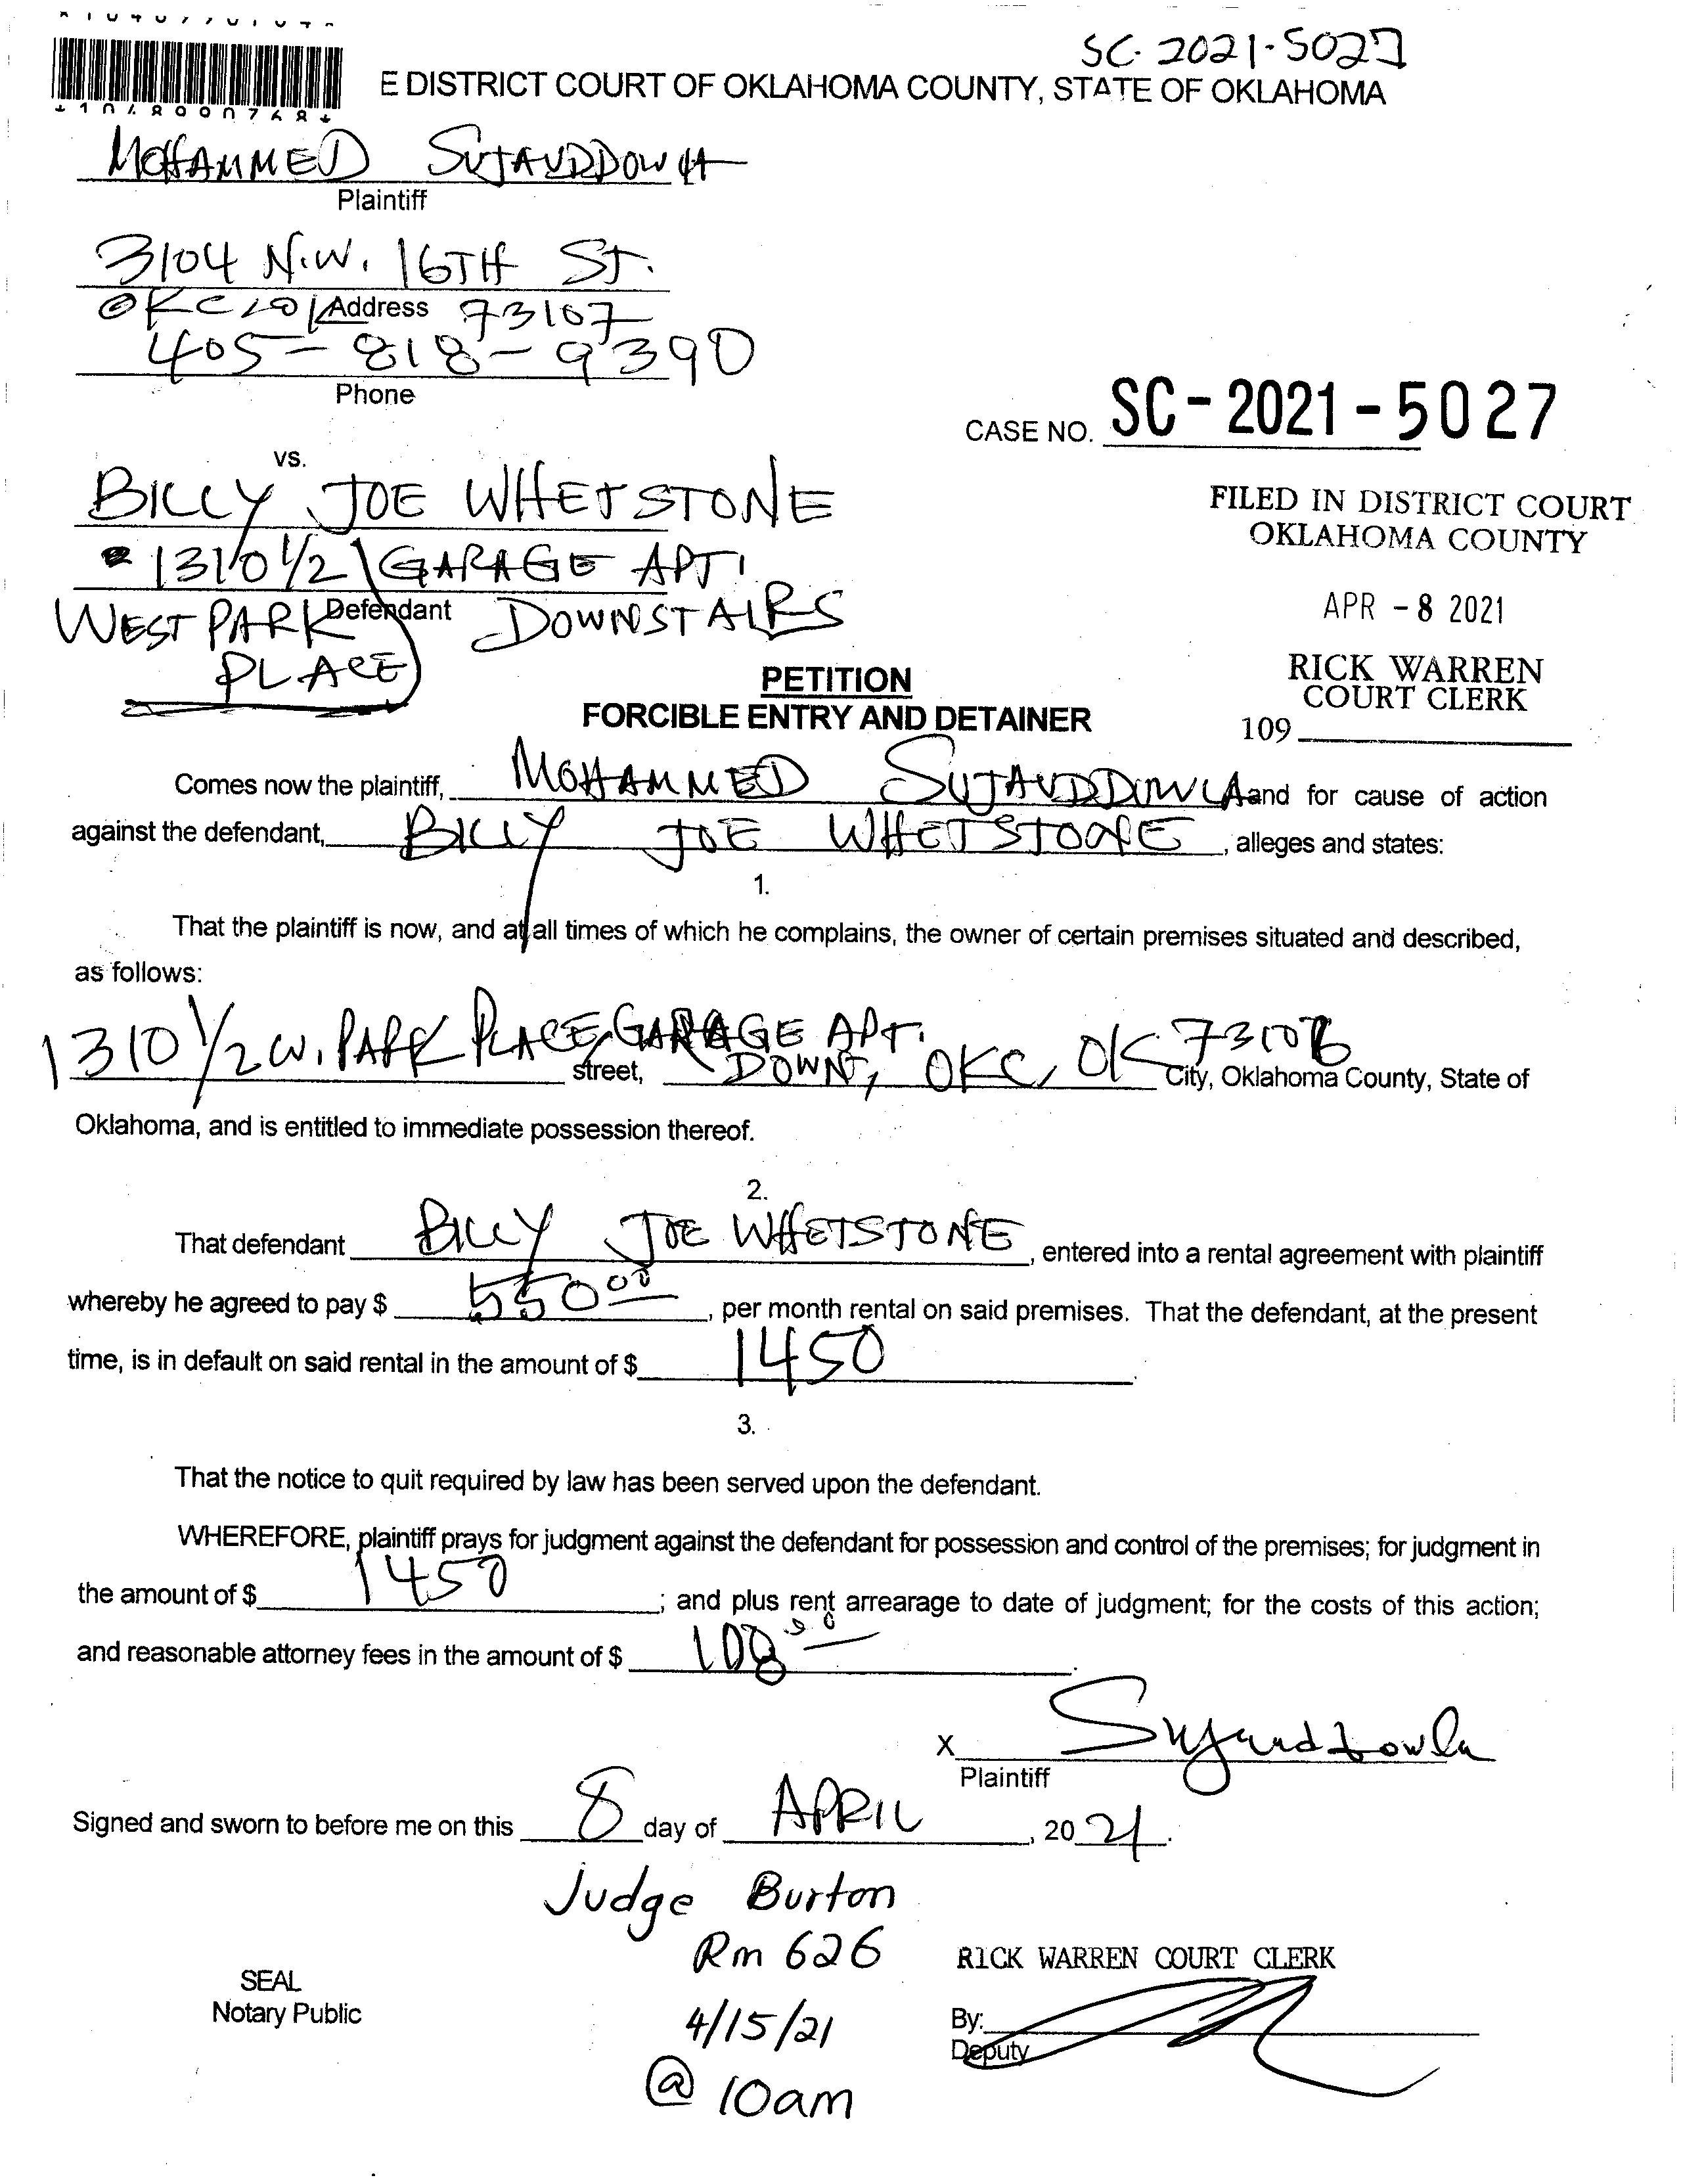 SC-2021-5027
E DISTRICT COURT OF OKLAHOMA COUNTY, STATE OF OKLAHOMA
MOHAMMED SUJAUDDOWLA
Plaintiff
3104 N.W. 16TH ST.
OKC Address 73107
405-818-9390
Phone
CASE NO. SC-2021-5027
vs.
BILLY JOE WHETSTONE
1310 1/2 GARAGE APT.
Defendant
WEST PARK DOWNSTAIRS
PLACE
FILED IN DISTRICT COURT
OKLAHOMA COUNTY
APR -8 2021
RICK WARREN
COURT CLERK
109
PETITION
FORCIBLE ENTRY AND DETAINER
Comes now the plaintiff, MOHAMMED SUJAUDDOWLA and for cause of action
against the defendant, BILLY JOE WHETSTONE, alleges and states:
1.
That the plaintiff is now, and at all times of which he complains, the owner of certain premises situated and described,
as follows:
1310 1/2 W. PARK PLACE, GARAGE APT.
street, DOWN, OKC, OK 73106 City, Oklahoma County, State of
Oklahoma, and is entitled to immediate possession thereof.
2.
That defendant BILLY JOE WHETSTONE, entered into a rental agreement with plaintiff
whereby he agreed to pay $ 550 00, per month rental on said premises. That the defendant, at the present
time, is in default on said rental in the amount of $ 1450.
3.
That the notice to quit required by law has been served upon the defendant.
WHEREFORE, plaintiff prays for judgment against the defendant for possession and control of the premises; for judgment in
the amount of $ 1450; and plus rent arrearage to date of judgment; for the costs of this action;
and reasonable attorney fees in the amount of $
X Sujauddowla
Plaintiff
Signed and sworn to before me on this 8 day of APRIL, 2021.
Judge Burton
Rm 626
4/15/21
@ 10am
SEAL
Notary Public
RICK WARREN COURT CLERK
By:
Deputy